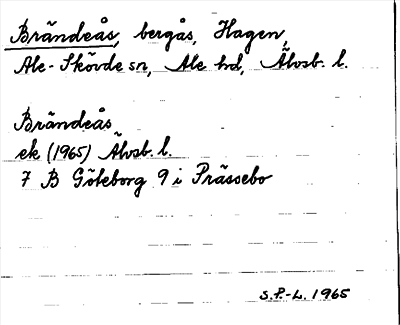 Brändeås, bergås, Hagen,
Ale-Skövde sn, Ale hd, Älvsb. l.
Brändeås
ek (1965) Älvsb. l.
7 B Göteborg 9 i Prässebo
S.P.-L. 1965